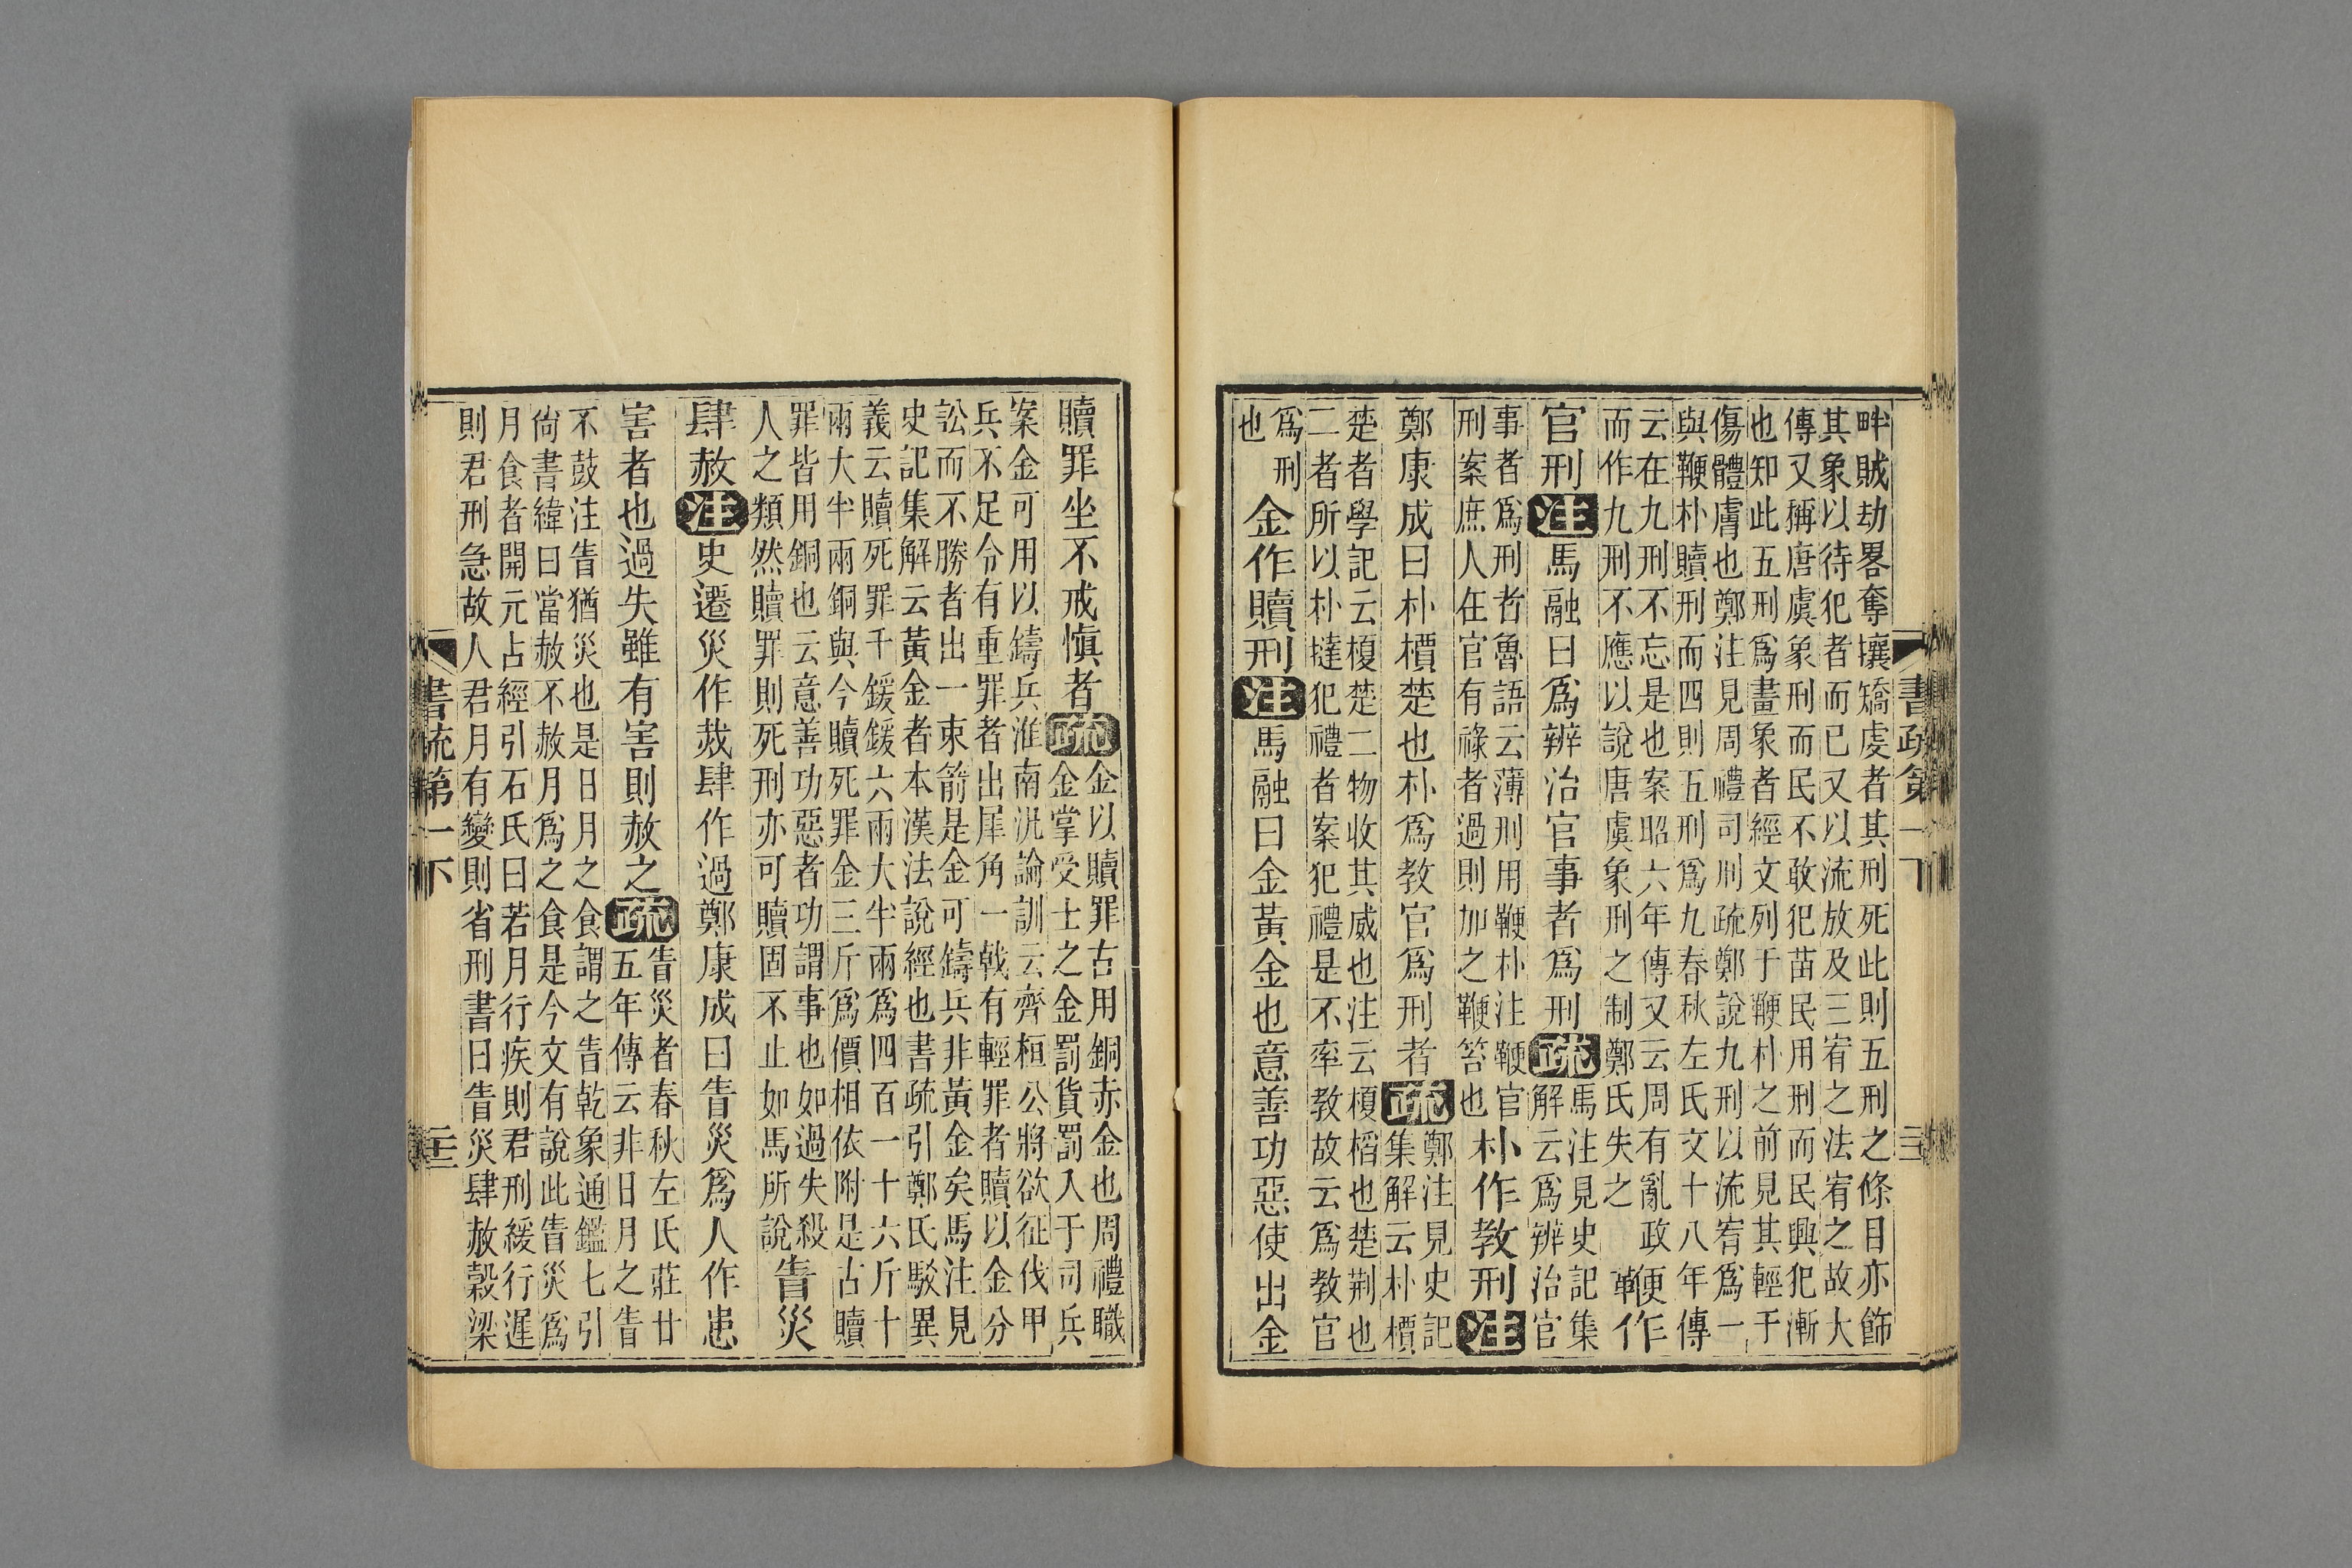 書疏第一下
畔賊劫畧奪攘矯虔者其刑死此則五刑之條目亦飾
其象以待犯者而已又以流放及三宥之法宥之故大
傳又稱唐虞象刑而民不敢犯苗民用刑而民興犯漸
也知此五刑爲畫象者經文列于鞭朴之前見其輕于
傷體膚也鄭注見周禮司刑疏鄭說九刑以流宥爲一
與鞭朴贖刑而四則五刑爲九春秋左氏文十八年傳
云在九刑不忘是也案昭六年傳又云周有亂政
而作九刑不應以說唐虞象刑之制鄭氏失之
鞭作
官刑注馬融曰爲辨治官事者爲刑疏
馬注見史記集
解云爲辨治官
事者爲刑者魯語云薄刑用鞭朴注鞭官
刑案庶人在官有祿者過則加之鞭笞也
朴作教刑注
鄭康成曰朴檟楚也朴爲教官爲刑者疏
鄭注見史記
集解云朴檟
楚者學記云榎楚二物收其威也注云榎槄也楚荆也
二者所以朴撻犯禮者案犯禮是不率教故云爲教官
爲刑
也
金作贖刑注馬融曰金黃金也意善功惡使出金
贖罪坐不戒慎者疏
金以贖罪古用銅赤金也周禮職
金掌受士之金罰貨罰入于司兵
案金可用以鑄兵淮南氾論訓云齊桓公將欲征伐甲
兵不足令有重罪者出犀角一戟有輕罪者贖以金分
訟而不勝者出一束箭是金可鑄兵非黃金矣馬注見
史記集解云黃金者本漢法說經也書疏引鄭氏駁異
義云贖死罪千鍰鍰六兩大半兩爲四百一十六斤十
兩大半兩銅與今贖死罪金三斤爲價相依附是古贖
罪皆用銅也云意善功惡者功謂事也如過失殺
人之類然贖罪則死刑亦可贖固不止如馬所說
眚災
肆赦注史遷災作烖肆作過鄭康成曰眚災爲人作患
害者也過失雖有害則赦之疏
眚災者春秋左氏莊廿
五年傳云非日月之眚
不鼓注眚猶災也是日月之食謂之眚乾象通鑑七引
尚書緯曰當赦不赦月爲之食是今文有說此眚災爲
月食者開元占經引石氏曰若月行疾則君刑緩行遲
則君刑急故人君月有變則省刑書曰眚災肆赦穀梁
書疏第一下